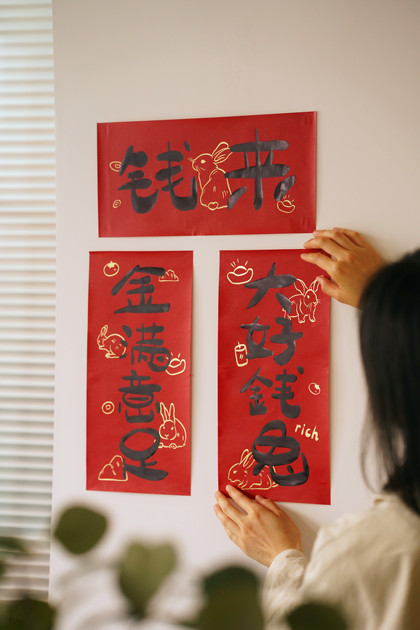 钱来
金满意足
大好钱兔
rich